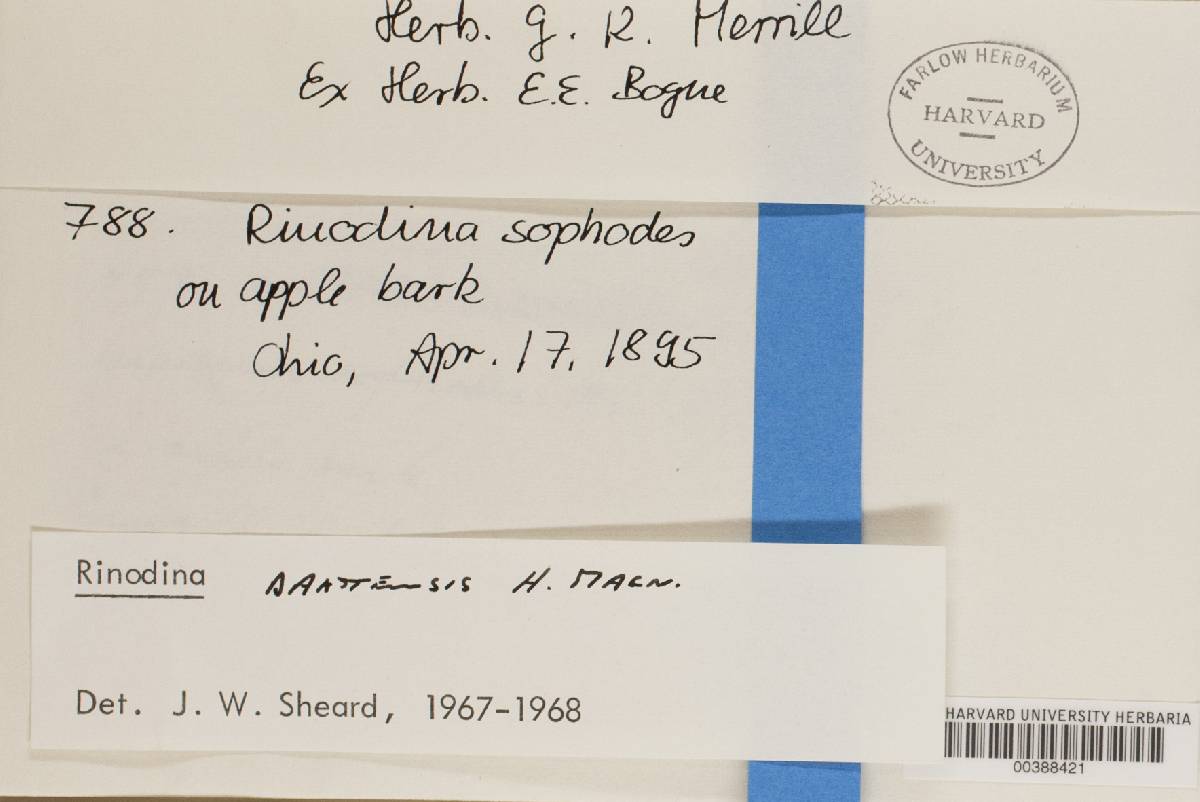 Herb. G. K. Merrill
Ex Herb. E.E. Bogue
FARLOW HERBARIUM
HARVARD
UNIVERSITY
788. Rinodina sophodes
on apple bark
Ohio, Apr. 17, 1895
Rinodina H. MAGN.
Det. J. W. Sheard, 1967-1968
HARVARD UNIVERSITY HERBARIA
00388421